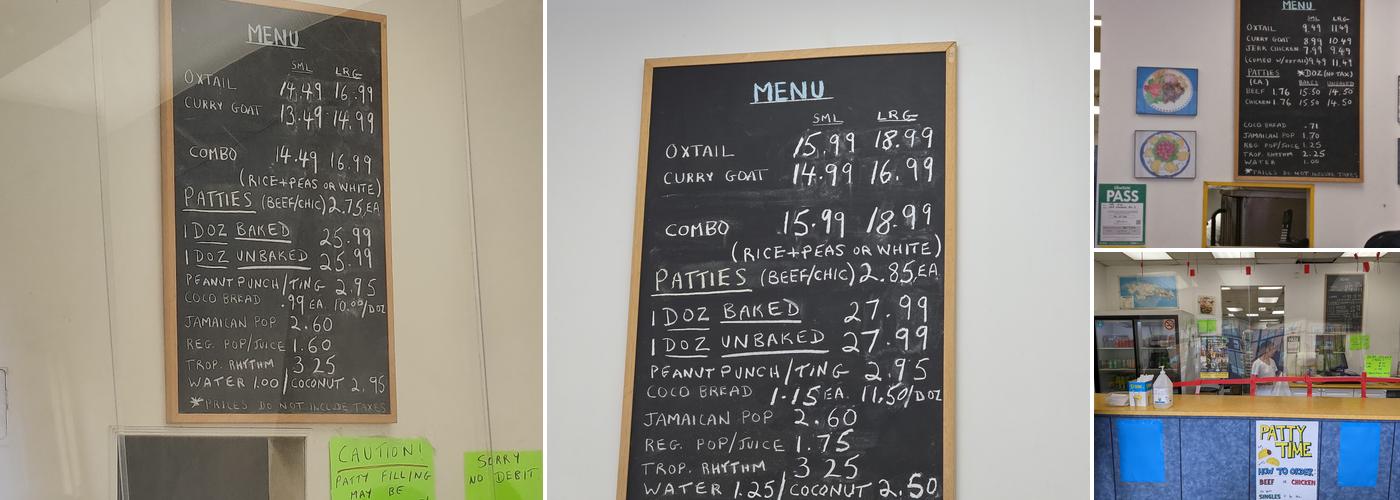 MENU
SML LRG
OXTAIL 14.49 16.99
CURRY GOAT 13.49 14.99
COMBO 14.49 16.99
(RICE+PEAS OR WHITE)
PATTIES (BEEF/CHIC) 2.75 EA
1 DOZ BAKED 25.99
1 DOZ UNBAKED 25.99
PEANUT PUNCH/TING 2.95
COCO BREAD .99 EA. 10.00/DOZ
JAMAICAN POP 2.60
REG. POP/JUICE 1.60
TROP. RHYTHM 3 25
WATER 1.00/COCONUT 2.95
*PRICES DO NOT INCLUDE TAXES
CAUTION!
PATTY FILLING
MAY BE
SORRY
NO DEBIT
MENU
SML LRG
OXTAIL 15.99 18.99
CURRY GOAT 14.99 16.99
COMBO 15.99 18.99
(RICE+PEAS OR WHITE)
PATTIES (BEEF/CHIC) 2.85 EA
1 DOZ BAKED 27.99
1 DOZ UNBAKED 27.99
PEANUT PUNCH/TING 2.95
COCO BREAD 1.15 EA. 11.50/DOZ
JAMAICAN POP 2.60
REG. POP/JUICE 1.75
TROP. RHYTHM 3 25
WATER 1.25/COCONUT 2.50
MENU
SML LRG
OXTAIL 9.49 11.49
CURRY GOAT 8.99 10.49
JERK CHICKEN 7.99 9.49
(COMBO W/OXTAIL) 9.49 11.49
PATTIES *DOZ (NO TAX)
(EA.) BAKED UNBAKED
BEEF 1.76 15.50 14.50
CHICKEN 1.76 15.50 14.50
COCO BREAD .71
JAMAICAN POP 1.70
REG. POP/JUICE 1.25
TROP. RHYTHM 2.25
WATER 1.00
*PRICES DO NOT INCLUDE TAXES
PASS
PATTY
TIME
HOW TO ORDER
BEEF CHICKEN
SINGLES